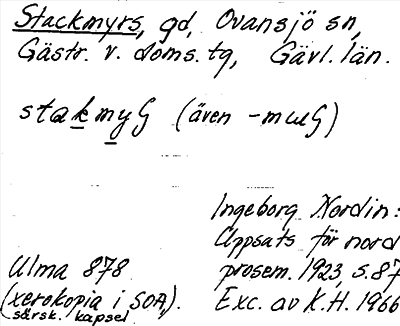 Stackmyrs, gd, Ovansjö sn,
Gästr. v. doms. tg, Gävl. län.
stakmyG (även -mɯG)
Ingeborg Nordin:
Uppsats för nord
Ulma 878 prosem. 1923, s. 87
(xerokopia i SOA, Exc. av K.H. 1966
särsk. kapsel).